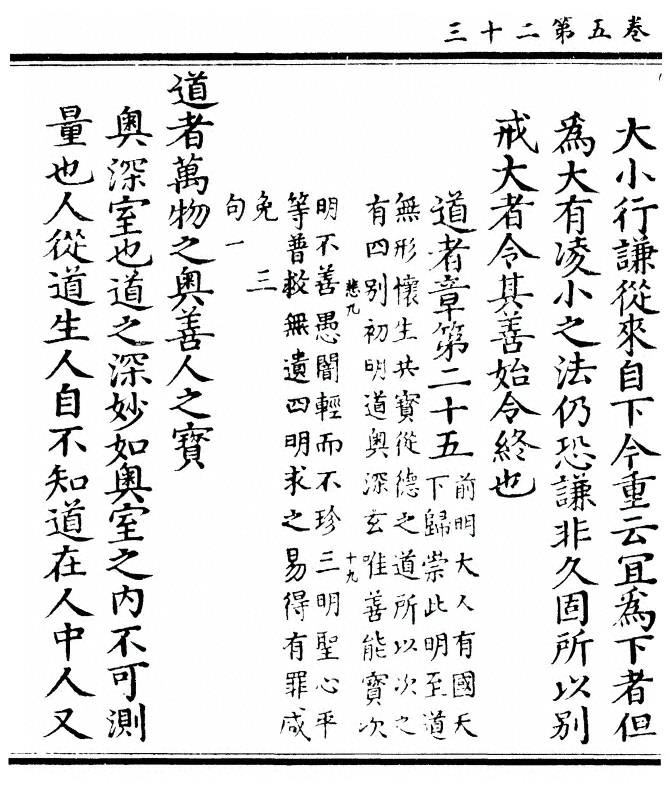 卷五第二十三
大小行謙從來自下今重云冝爲下者但
爲大有凌小之法仍恐謙非久固所以別
戒大者令其善始令終也
道者章第二十五
前明大人有國天
下歸崇此明至道
無形懷生共寶從德之道所以次之
有四別初明道奧深玄唯善能寶次
悲九
十九
明不善愚闇輕而不珍三明聖心平
等普救無遺四明求之易得有罪咸
免三
句一
道者萬物之奧善人之寶
奧深室也道之深妙如奧室之內不可測
量也人從道生人自不知道在人中人又